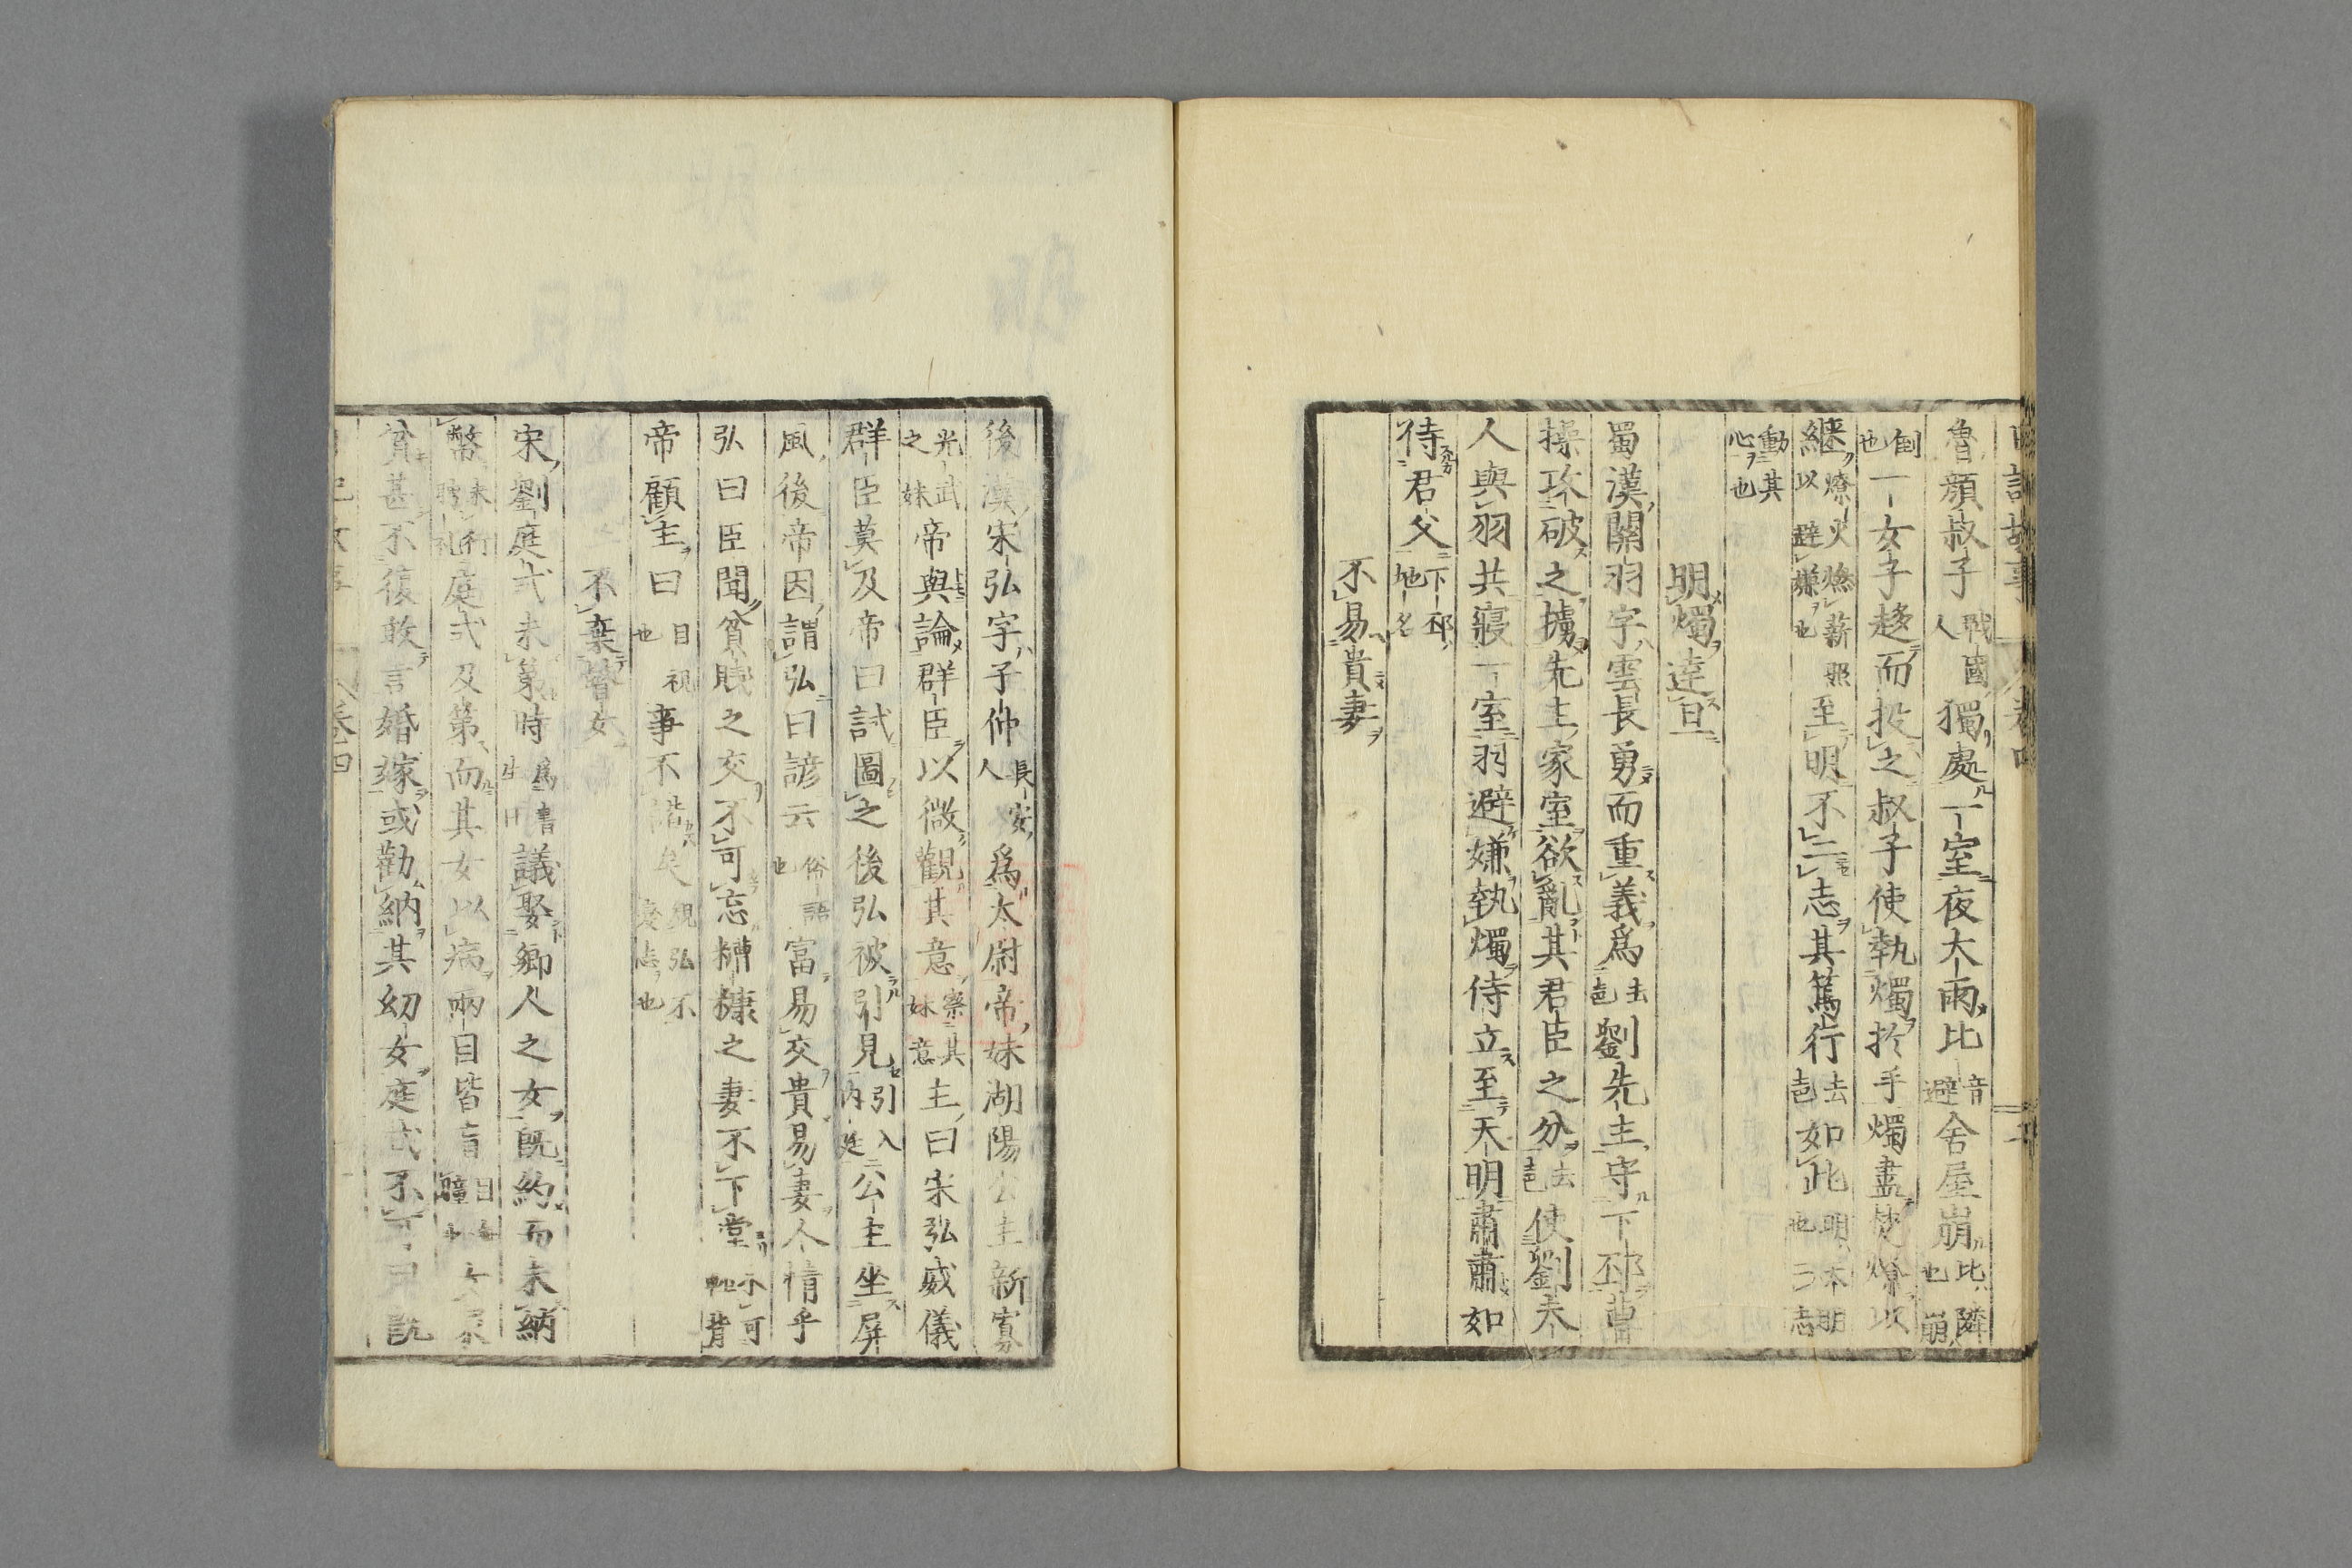 日記故事 卷四
魯顏叔子戰國人獨處一室夜大雨比音避舍屋崩比隣也崩
倒也一女子趍而投之叔子使執燭於手燭盡焚燎以
継燎火燃薪照以避嫌也至明不二志其篤行去声如此明本明也二志
動其心也
明燭達旦
蜀漢關羽字雲長勇而重義為去声劉先主守下邳曹
操攻破之擄先主家室欲亂其君臣之分去声使劉夫
人與羽共寢一室羽避嫌執燭侍立至天明肅肅如
待君父下邳地名
不易貴妻
後漢宋弘字子仲長安人為太尉帝妹湖陽公主新寡
光武之妹帝與論群臣以微觀其意察其妹意主曰宋弘威儀
群臣莫及帝曰試圖之後弘被引見引入內庭公主坐屏
風後帝因謂弘曰諺云俗語也富易交貴易妻人情乎
弘曰臣聞貧賎之交不可忘糟糠之妻不下堂不可背
帝顧主曰目視也事不諧矣視弘不変志也
不棄瞽女
宋劉庭式未第時為書生日議娶鄉人之女既約而未納
幣未行聘礼庭式及第而其女以病兩目皆盲目瞳女家
貧甚不復敢言婚嫁或勸納其幼女庭式不可
卷四